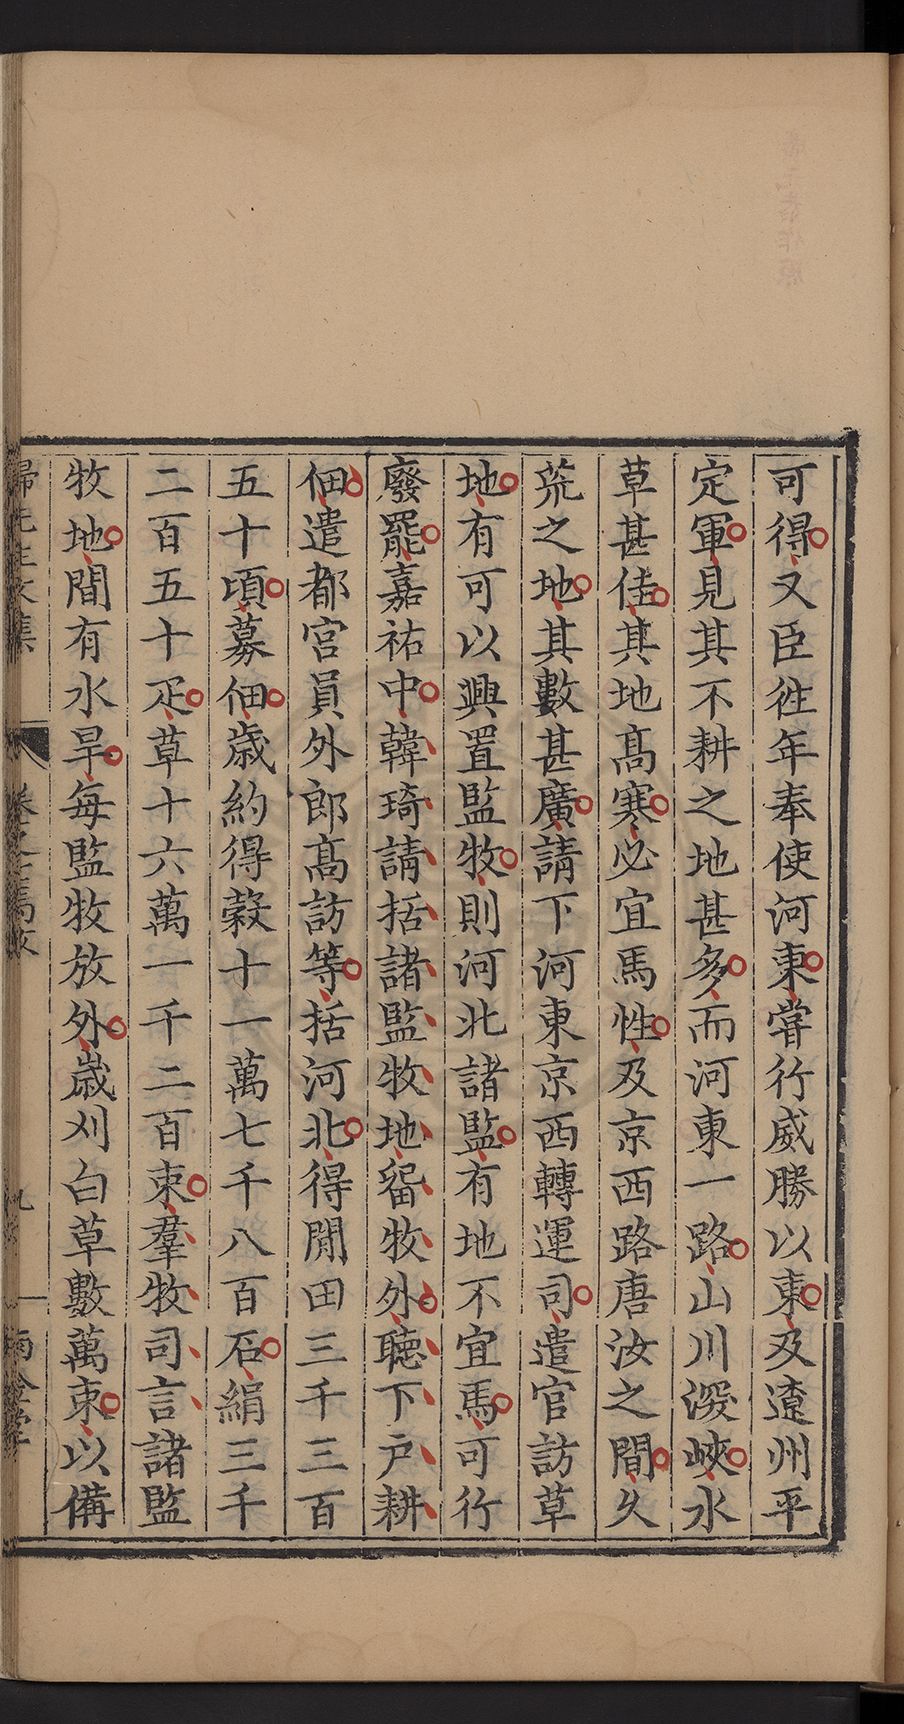 可得又臣往年奉使河東嘗行威勝以東及遼州平
定軍見其不耕之地甚多而河東一路山川深峽水
草甚佳其地髙寒必宜馬性及京西路唐汝之間久
荒之地其數甚廣請下河東京西轉運司遣官訪草
地有可以興置監牧則河北諸監有地不宜馬可行
廢罷嘉祐中韓琦請括諸監牧地留牧外聽下戸耕
佃遣都官員外郎髙訪等括河北得閒田三千三百
五十頃募佃歲約得穀十一萬七千八百石絹三千
二百五十疋草十六萬一千二百束羣牧司言諸監
牧地間有水旱每監牧放外歲刈白草數萬束以備